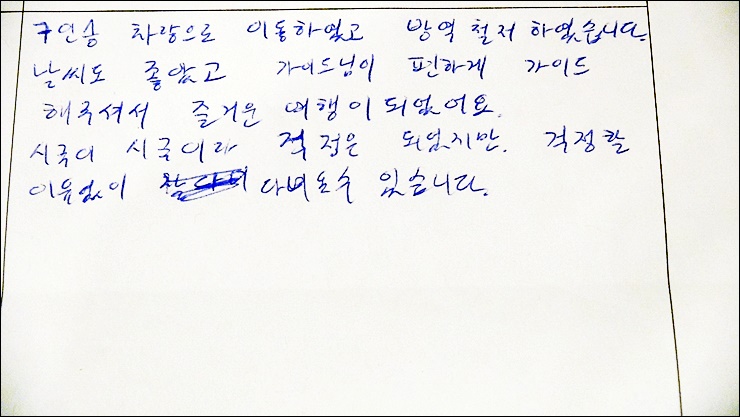 구인승 차량으로 이동하였고 방역 철저 하였습니다.
날씨도 좋았고 가이드님이 편하게 가이드
해주셔서 즐거운 여행이 되었어요.
시국이 시국이라 걱정은 되었지만. 걱정할
이유없이 다녀올수 있습니다.